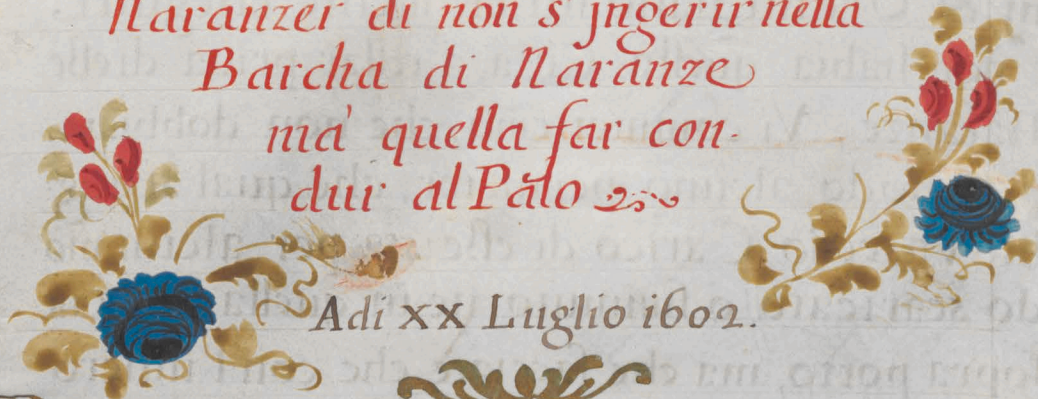 Naranzer di non s'jngerir nella
Barcha di Naranze
ma' quella far con-
dur al Palo
Adi XX Luglio 1602.